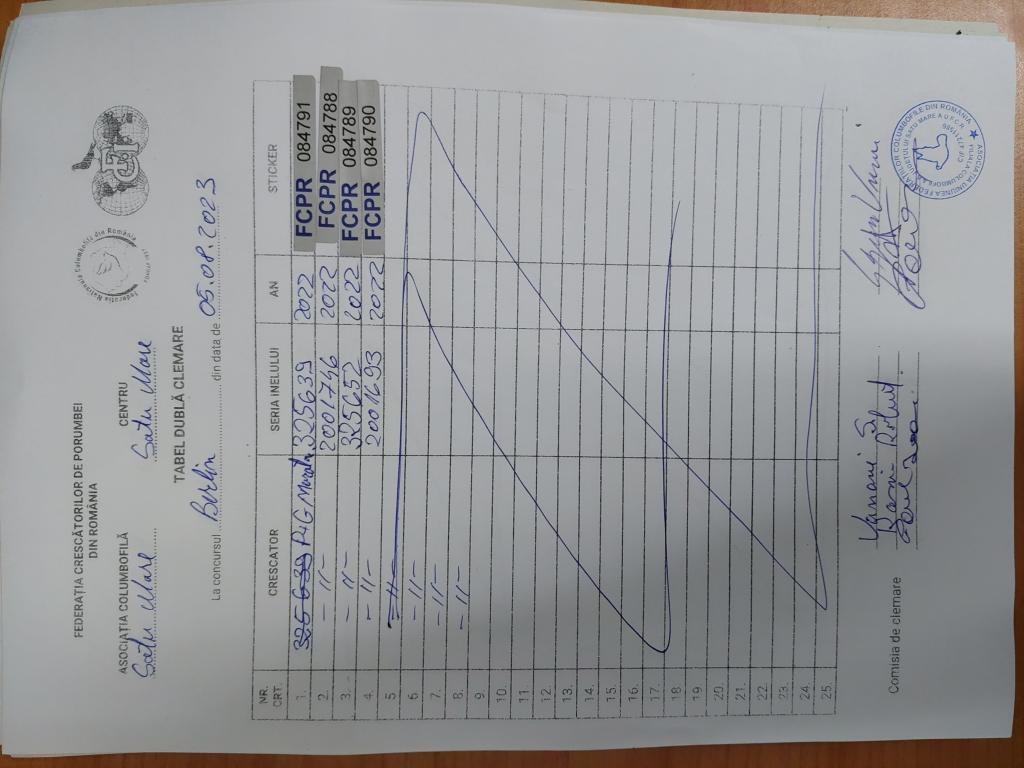 FEDERAȚIA CRESCĂTORILOR DE PORUMBEI
DIN ROMÂNIA
Federația Națională Columbofilă din România
FCI
ASOCIAȚIA COLUMBOFILĂ CENTRU
Satu Mare Satu Mare
TABEL DUBLĂ CLEMARE
La concursul Berlin din data de 05.08.2023
NR. CRT. CRESCATOR SERIA INELULUI AN STICKER
1. 325639 P+G 325639 2022 FCPR 084791
2. -11- 2001746 2022 FCPR 084788
3. -11- 325652 2022 FCPR 084789
4. -11- 2001693 2022 FCPR 084790
5 -11-
6. -11-
7. -11-
8. -11-
9.
10.
11.
12.
13.
14.
15.
16.
17.
18.
19.
20.
21.
22.
23.
24.
25.
Comisia de clemare
Robert
ASOCIAȚIA UNIUNEA FEDERAȚIILOR COLUMBOFILE DIN ROMÂNIA
FILIALA COLUMBOFILĂ A JUDEȚULUI SATU MARE A U.F.C.R.